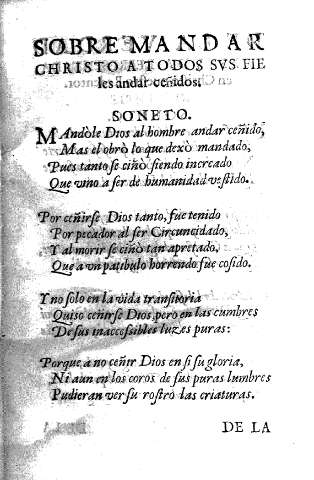 SOBRE MANDAR
CHRISTO A TODOS SVS FIE
les andar ceñidos.
SONETO.
MAndòle Dios al hombre andar ceñido,
Mas el obrò lo que dexò mandado,
Pues tanto se ciñò siendo increado
Que vino a ser de humanidad vestido.
Por ceñirse Dios tanto, fue tenido
Por pecador al ser Circuncidado,
Y al morir se ciñò tan apretado,
Que a vn patibulo horrendo fue cosido.
Y no solo en la vida transitoria
Quiso ceñirse Dios, pero en las cumbres
De sus inaccessibles luzes puras:
Porque a no ceñir Dios en si su gloria,
Ni aun en los coros de sus puras lumbres
Pudieran ver su rostro las criaturas.
DE LA